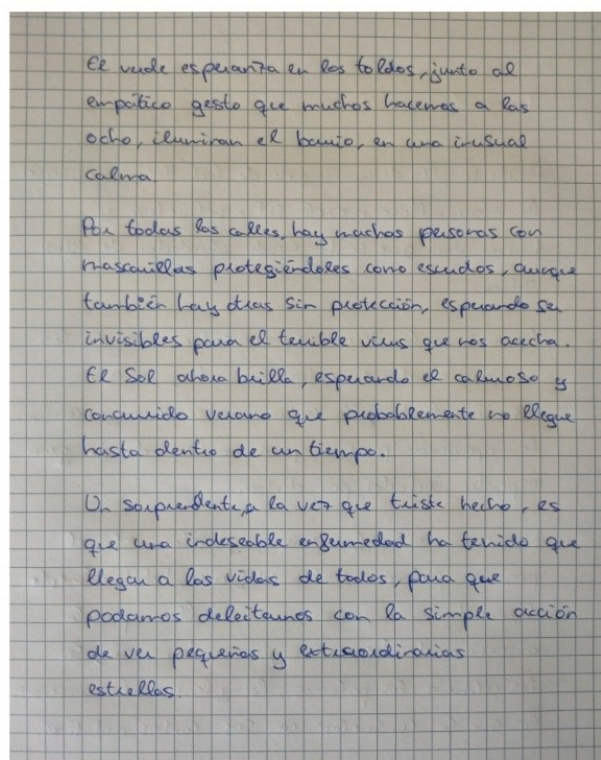 El verde esperanza en los toldos, junto al
empático gesto que muchos hacemos a las
ocho, iluminan el barrio, en una inusual
calma.
Por todas las calles, hay muchas personas con
mascarillas protegiéndoles como escudos, aunque
también hay otras sin protección, esperando ser
invisibles para el terrible virus que nos acecha.
El Sol ahora brilla, esperando el caluroso y
concurrido verano que probablemente no llegue
hasta dentro de un tiempo.
Un sorprendente, a la vez que triste hecho, es
que una indeseable enfermedad ha tenido que
llegar a las vidas de todos, para que
podamos deleitarnos con la simple acción
de ver pequeñas y extraordinarias
estrellas.